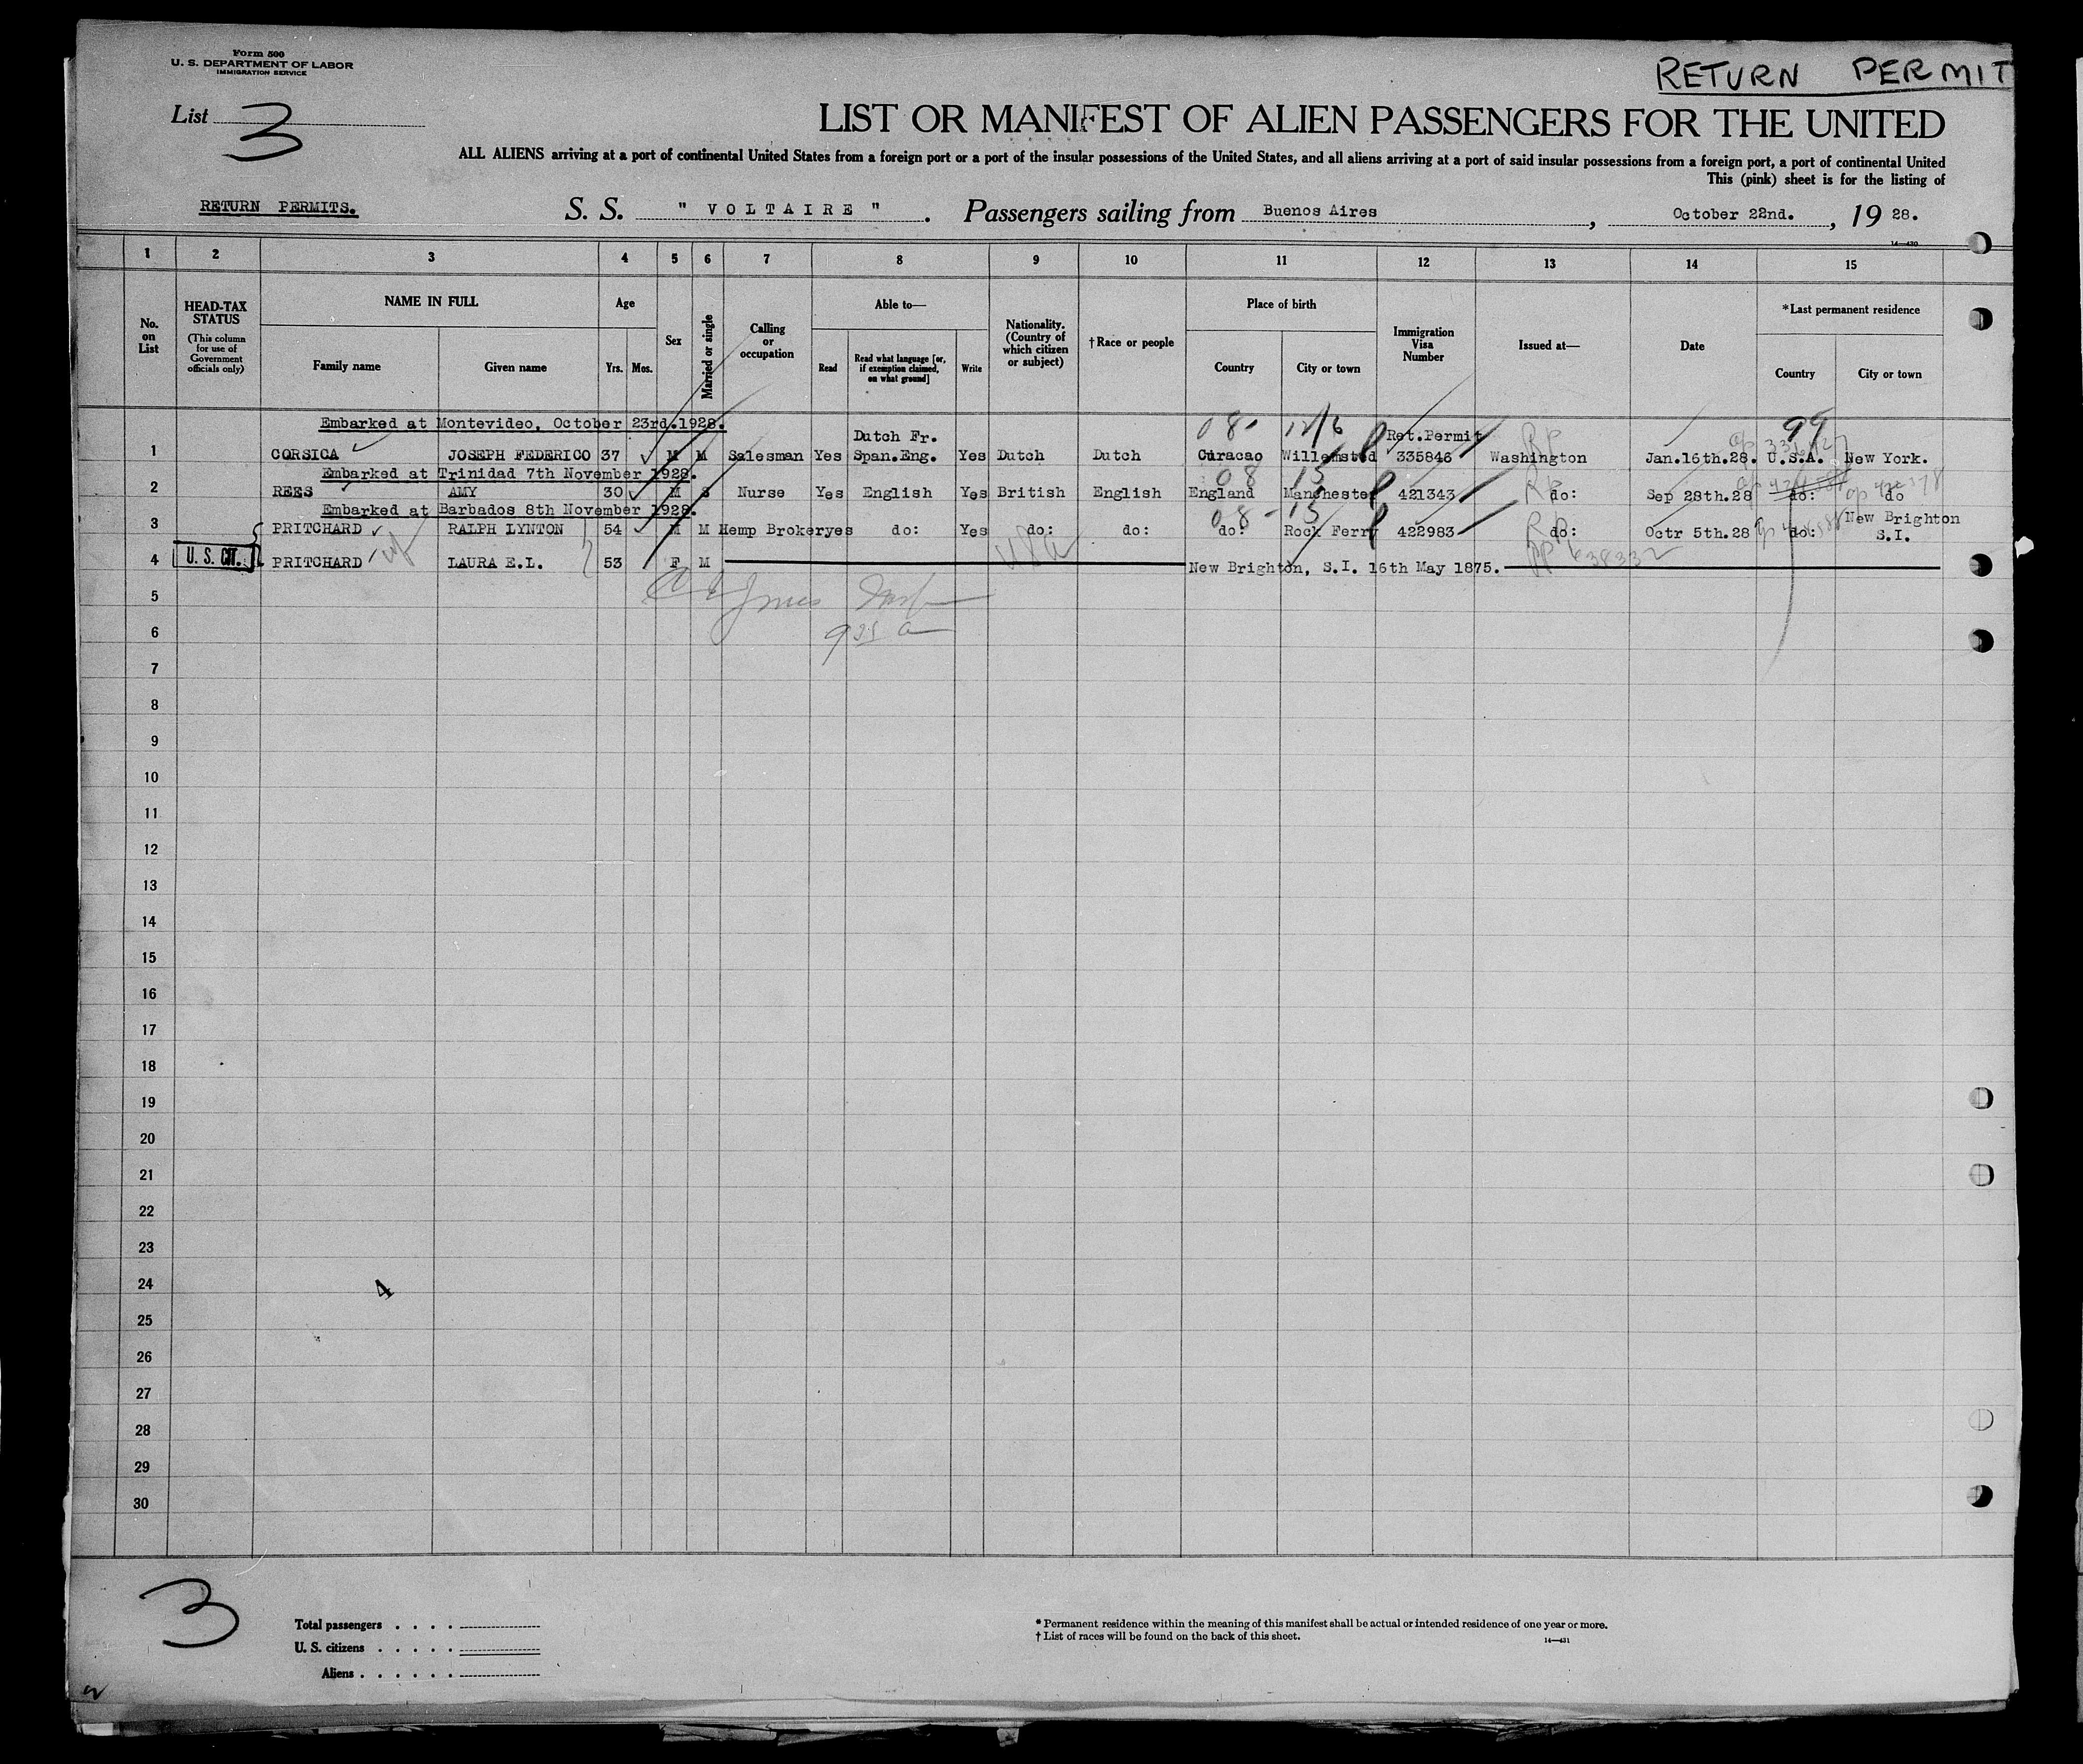 Form 500
U. S. DEPARTMENT OF LABOR
IMMIGRATION SERVICE
RETURN PERMIT
List 3
LIST OR MANIFEST OF ALIEN PASSENGERS FOR THE UNITED
ALL ALIENS arriving at a port of continental United States from a foreign port or a port of the insular possessions of the United States, and all aliens arriving at a port of said insular possessions from a foreign port, a port of continental United
This (pink) sheet is for the listing of
RETURN PERMITS. S. S. " VOLTAIRE " . Passengers sailing from Buenos Aires , October 22nd. , 19 28.
14—430
1 2 3 4 5 6 7 8 9 10 11 12 13 14 15
No. on List
HEAD-TAX STATUS (This column for use of Government officials only)
NAME IN FULL Family name Given name
Age Yrs. Mos.
Sex
Married or single
Calling or occupation
Able to— Read Read what language [or, if exemption claimed, on what ground] Write
Nationality. (Country of which citizen or subject)
†Race or people
Place of birth Country City or town
Immigration Visa Number
Issued at—
Date
*Last permanent residence Country City or town
Embarked at Montevideo, October 23rd.1928. 08 99
1 CORSICA JOSEPH FEDERICO 37 M M Salesman Yes Dutch Fr. Span.Eng. Yes Dutch Dutch Curacao Willemsted Ret.Permit 335846 RP Washington Jan.16th.28. U.S.A. New York.
Embarked at Trinidad 7th November 1928. 08 15
2 REES AMY 30 M S Nurse Yes English Yes British English England Manchester 421343 RP do: Sep 28th.28 do: do
Embarked at Barbados 8th November 1928. 08 - 15
3 PRITCHARD RALPH LYNTON 54 M M Hemp Brokeryes do: Yes do: do: do: Rock Ferry 422983 RP do: Octr 5th.28 do: New Brighton S.I.
4 U. S. CIT. PRITCHARD LAURA E.L. 53 F M USA New Brighton, S.I. 16th May 1875. PP 638332
5
6
7
8
9
10
11
12
13
14
15
16
17
18
19
20
21
22
23
24 4
25
26
27
28
29
30
3
Total passengers . . . .
U. S. citizens . . . . .
Aliens . . . . . .
* Permanent residence within the meaning of this manifest shall be actual or intended residence of one year or more.
† List of races will be found on the back of this sheet.
14—431